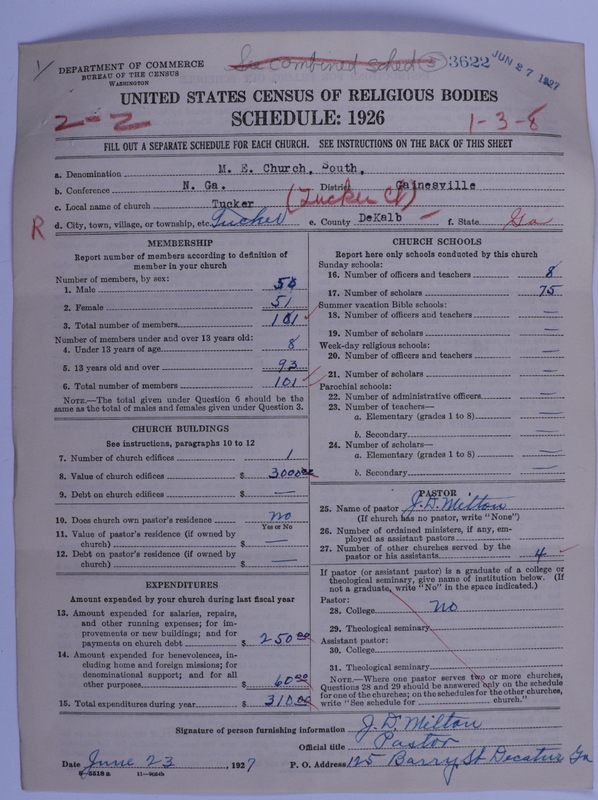 1/
DEPARTMENT OF COMMERCE
BUREAU OF THE CENSUS
WASHINGTON
See combined sched 3622 JUN 27 1927
UNITED STATES CENSUS OF RELIGIOUS BODIES
2-2 SCHEDULE: 1926 1-3-8
FILL OUT A SEPARATE SCHEDULE FOR EACH CHURCH. SEE INSTRUCTIONS ON THE BACK OF THIS SHEET
a. Denomination M. E. Church, South,
b. Conference N. Ga. District Gainesville
c. Local name of church Tucker (Tucker Ct)
R d. City, town, village, or township, etc. Tucker e. County DeKalb f. State Ga
MEMBERSHIP
Report number of members according to definition of
member in your church
Number of members, by sex:
1. Male 50
2. Female 51
3. Total number of members 101
Number of members under and over 13 years old:
4. Under 13 years of age 8
5. 13 years old and over 93
6. Total number of members 101
NOTE.—The total given under Question 6 should be the
same as the total of males and females given under Question 3.
CHURCH BUILDINGS
See instructions, paragraphs 10 to 12
7. Number of church edifices 1
8. Value of church edifices $ 3000.00
9. Debt on church edifices $ —
10. Does church own pastor's residence no
Yes or No
11. Value of pastor's residence (if owned by
church) $ —
12. Debt on pastor's residence (if owned by
church) $ —
EXPENDITURES
Amount expended by your church during last fiscal year
13. Amount expended for salaries, repairs,
and other running expenses; for im-
provements or new buildings; and for
payments on church debt $ 250.00
14. Amount expended for benevolences, in-
cluding home and foreign missions; for
denominational support; and for all
other purposes $ 60.00
15. Total expenditures during year $ 310.00
CHURCH SCHOOLS
Report here only schools conducted by this church
Sunday schools:
16. Number of officers and teachers 8
17. Number of scholars 75
Summer vacation Bible schools:
18. Number of officers and teachers —
19. Number of scholars —
Week-day religious schools:
20. Number of officers and teachers —
21. Number of scholars —
Parochial schools:
22. Number of administrative officers —
23. Number of teachers—
a. Elementary (grades 1 to 8) —
b. Secondary —
24. Number of scholars—
a. Elementary (grades 1 to 8) —
b. Secondary —
PASTOR
25. Name of pastor J. D. Milton
(If church has no pastor, write "None")
26. Number of ordained ministers, if any, em-
ployed as assistant pastors
27. Number of other churches served by the
pastor or his assistants 4
If pastor (or assistant pastor) is a graduate of a college or
theological seminary, give name of institution below. (If
not a graduate, write "No" in the space indicated.)
Pastor:
28. College no
29. Theological seminary
Assistant pastor:
30. College
31. Theological seminary
NOTE.—Where one pastor serves two or more churches,
Questions 28 and 29 should be answered only on the schedule
for one of the churches; on the schedules for the other churches,
write "See schedule for church."
Signature of person furnishing information J. D. Milton
Official title Pastor
Date June 23, 1927 P. O. Address 125 Barry St Decatur Ga
8-5518 a 11-9084b